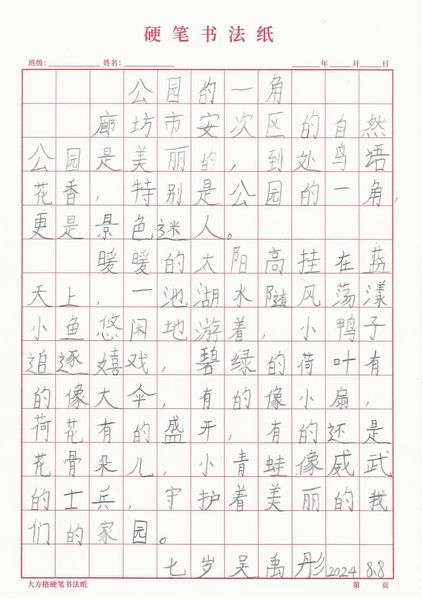 硬笔书法纸
班级: 姓名: 年 月 日
公园的一角
廊坊市安次区的自然
公园是美丽的，到处鸟语
花香，特别是公园的一角，
更是景色迷人。
暖暖的太阳高挂在蓝
天上，一池湖水随风荡漾
小鱼悠闲地游着，小鸭子
追逐嬉戏，碧绿的荷叶有
的像大伞，有的像小扇，
荷花有的盛开，有的还是
花骨朵儿，小青蛙像威武
的士兵，守护着美丽的我
们的家园。
七岁吴禹彤2024 8.8
大方格硬笔书法纸 第 页